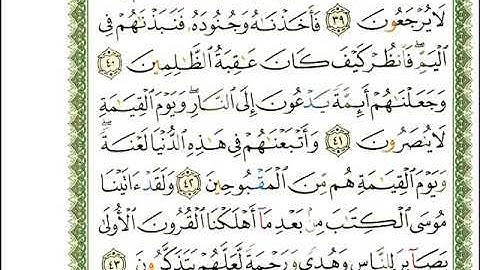 لَا يُرْجَعُونَ ۝٣٩ فَأَخَذْنَٰهُ وَجُنُودَهُۥ فَنَبَذْنَٰهُمْ فِي
ٱلْيَمِّ ۖ فَٱنظُرْ كَيْفَ كَانَ عَٰقِبَةُ ٱلظَّٰلِمِينَ ۝٤٠
وَجَعَلْنَٰهُمْ أَئِمَّةً يَدْعُونَ إِلَى ٱلنَّارِ ۖ وَيَوْمَ ٱلْقِيَٰمَةِ
لَا يُنصَرُونَ ۝٤١ وَأَتْبَعْنَٰهُمْ فِي هَٰذِهِ ٱلدُّنْيَا لَعْنَةً ۖ
وَيَوْمَ ٱلْقِيَٰمَةِ هُم مِّنَ ٱلْمَقْبُوحِينَ ۝٤٢ وَلَقَدْ ءَاتَيْنَا
مُوسَى ٱلْكِتَٰبَ مِنۢ بَعْدِ مَآ أَهْلَكْنَا ٱلْقُرُونَ ٱلْأُولَىٰ
بَصَآئِرَ لِلنَّاسِ وَهُدًى وَرَحْمَةً لَّعَلَّهُمْ يَتَذَكَّرُونَ ۝٤٣